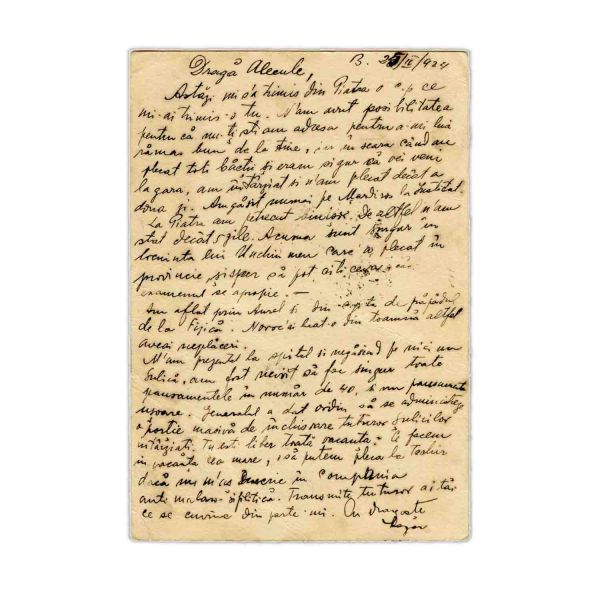 B. 25/IV/924
Dragă Alecule,
Astăzi mi s'a trimis din Piatra o c.p ce
mi-ai trimis-o tu. N'am avut posibilitatea
pentru că nu-ți știam adresa pentru a-mi lua
rămas bun de la tine, iar în seara când au
plecat toți băeții eram sigur că vei veni
la gara, am întârziat și n'am plecat decât a
doua zi. Am găsit numai pe la Institut.
La Piatra am petrecut De altfel n'am
stat decât zile. Acuma sunt singur în
locuința lui Unchiu meu care a plecat în
provincie și sper să pot citi ceva căci
examenul se apropie. —
Am aflat prin Aurel și din de păpădul
de la Fizică. Noroc că ai luat-o din toamnă altfel
aveai neplăceri.
M'am prezentat la spital și negăsind pe nici un
Sulică, am fost nevoit să fac singur toate
pansamentele în număr de 40, și nu pansamente
ușoare. Generalul a dat ordin să se administreze
o porție masivă de închisoare tuturor Sulicilor
întârziați. Tu ești liber toată vacanța. Ce facem
în vacanța cea mare, să putem pleca la
dacă nu m'aș înscrie în compania
anti malaro-sifilitică. Transmite tuturor alor tăi
ce se cuvine din parte-mi. Cu dragoste
Lazăr